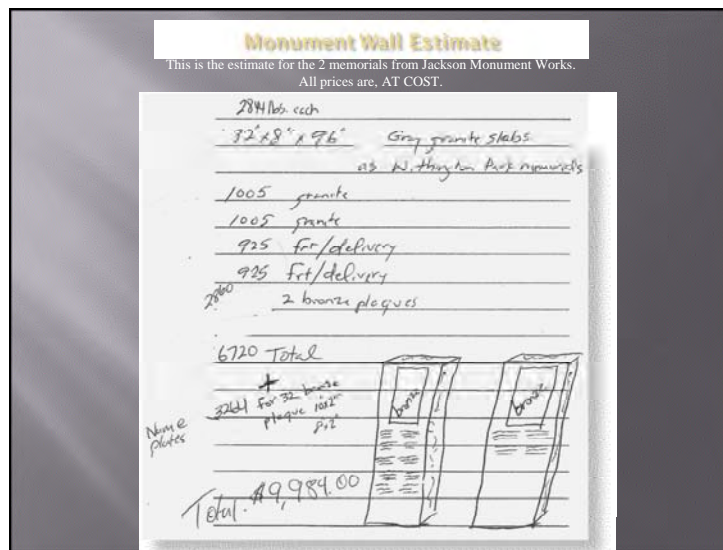 Monument Wall Estimate
This is the estimate for the 2 memorials from Jackson Monument Works.
All prices are, AT COST.
2844 lbs. each
32" x 8" x 96" Gray granite slabs
as Park memorials
1005 granite
1005 granite
925 frt/delivery
925 frt/delivery
2860 2 bronze plaques
6720 Total
+
3264 for 32 bronze
plaque 10x2"
8x2"
Name
plates
bronze
bronze
Total. $9,984.00